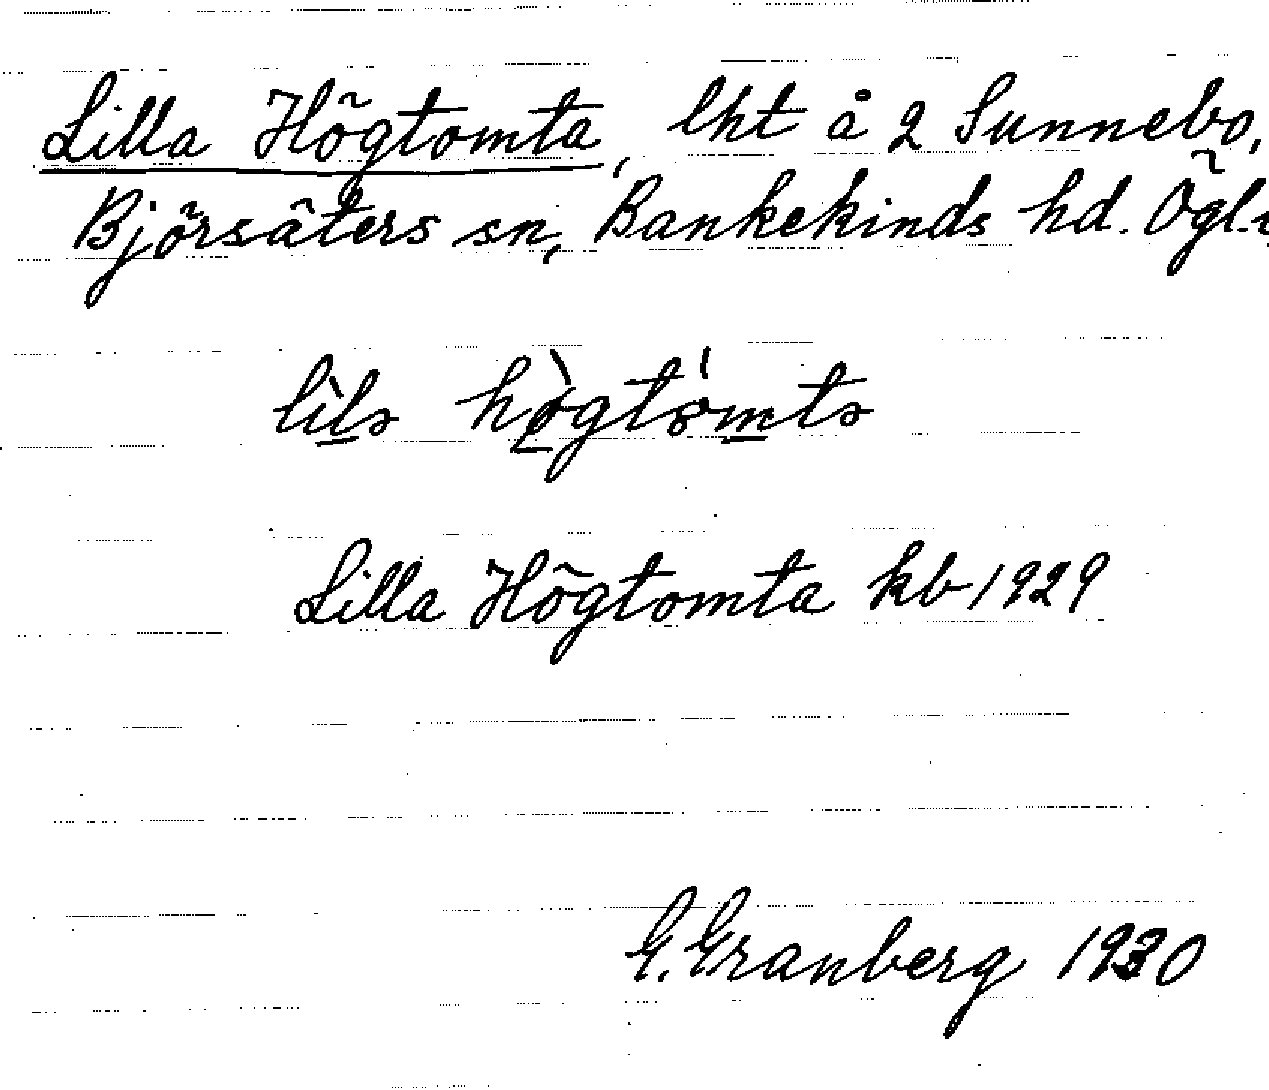 Lilla Högtomta, lht å 2 Sunnebo,
Björsäters sn, Bankekinds hd. Ögl.
lìlа hø̀gtómta
Lilla Högtomta kb 1929
G. Granberg 1930